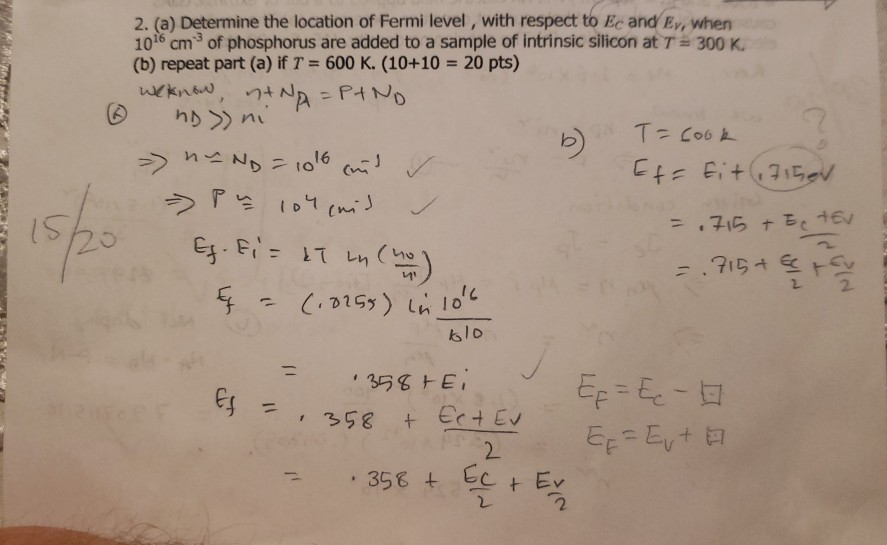 2. (a) Determine the location of Fermi level , with respect to Ec and Ev, when
10¹⁶ cm⁻³ of phosphorus are added to a sample of intrinsic silicon at T = 300 K.
(b) repeat part (a) if T = 600 K. (10+10 = 20 pts)
we know, n + NA = P + ND
(a)
nD >> ni
⇒ n ≃ ND = 10¹⁶ cm⁻³ ✓
⇒ P ≅ 10⁴ cm⁻³ ✓
15/20
Ef - Ei = kT ln (no/ni)
Ef = (.0259) ln 10¹⁶/10¹⁰
= .358 + Ei ✓
Ef = .358 + (Ec + Ev)/2
= .358 + Ec/2 + Ev/2
b) T = 600 k
?
Ef = Ei + .715eV
= .715 + (Ec + Ev)/2
= .715 + Ec/2 + Ev/2
EF = Ec - □
EF = Ev + □